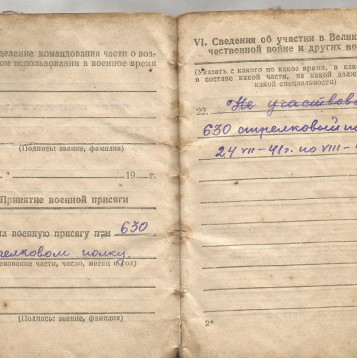 деление командования части о воз-
ом использовании в военное время
(Подпись: звание, фамилия)
19 г.
Принятие военной присяги
л военную присягу при 630
релковом полку.
нование части, число, месяц и год)
(Подпись: звание, фамилия)
VI. Сведения об участии в Велик
чественной войне и других во
(Указать с какого по какое время, в как
в составе какой части, на какой долж
какой специальности)
22. Не участвова
630 стрелковый по
24 VII-41г. по VIII-4
2*